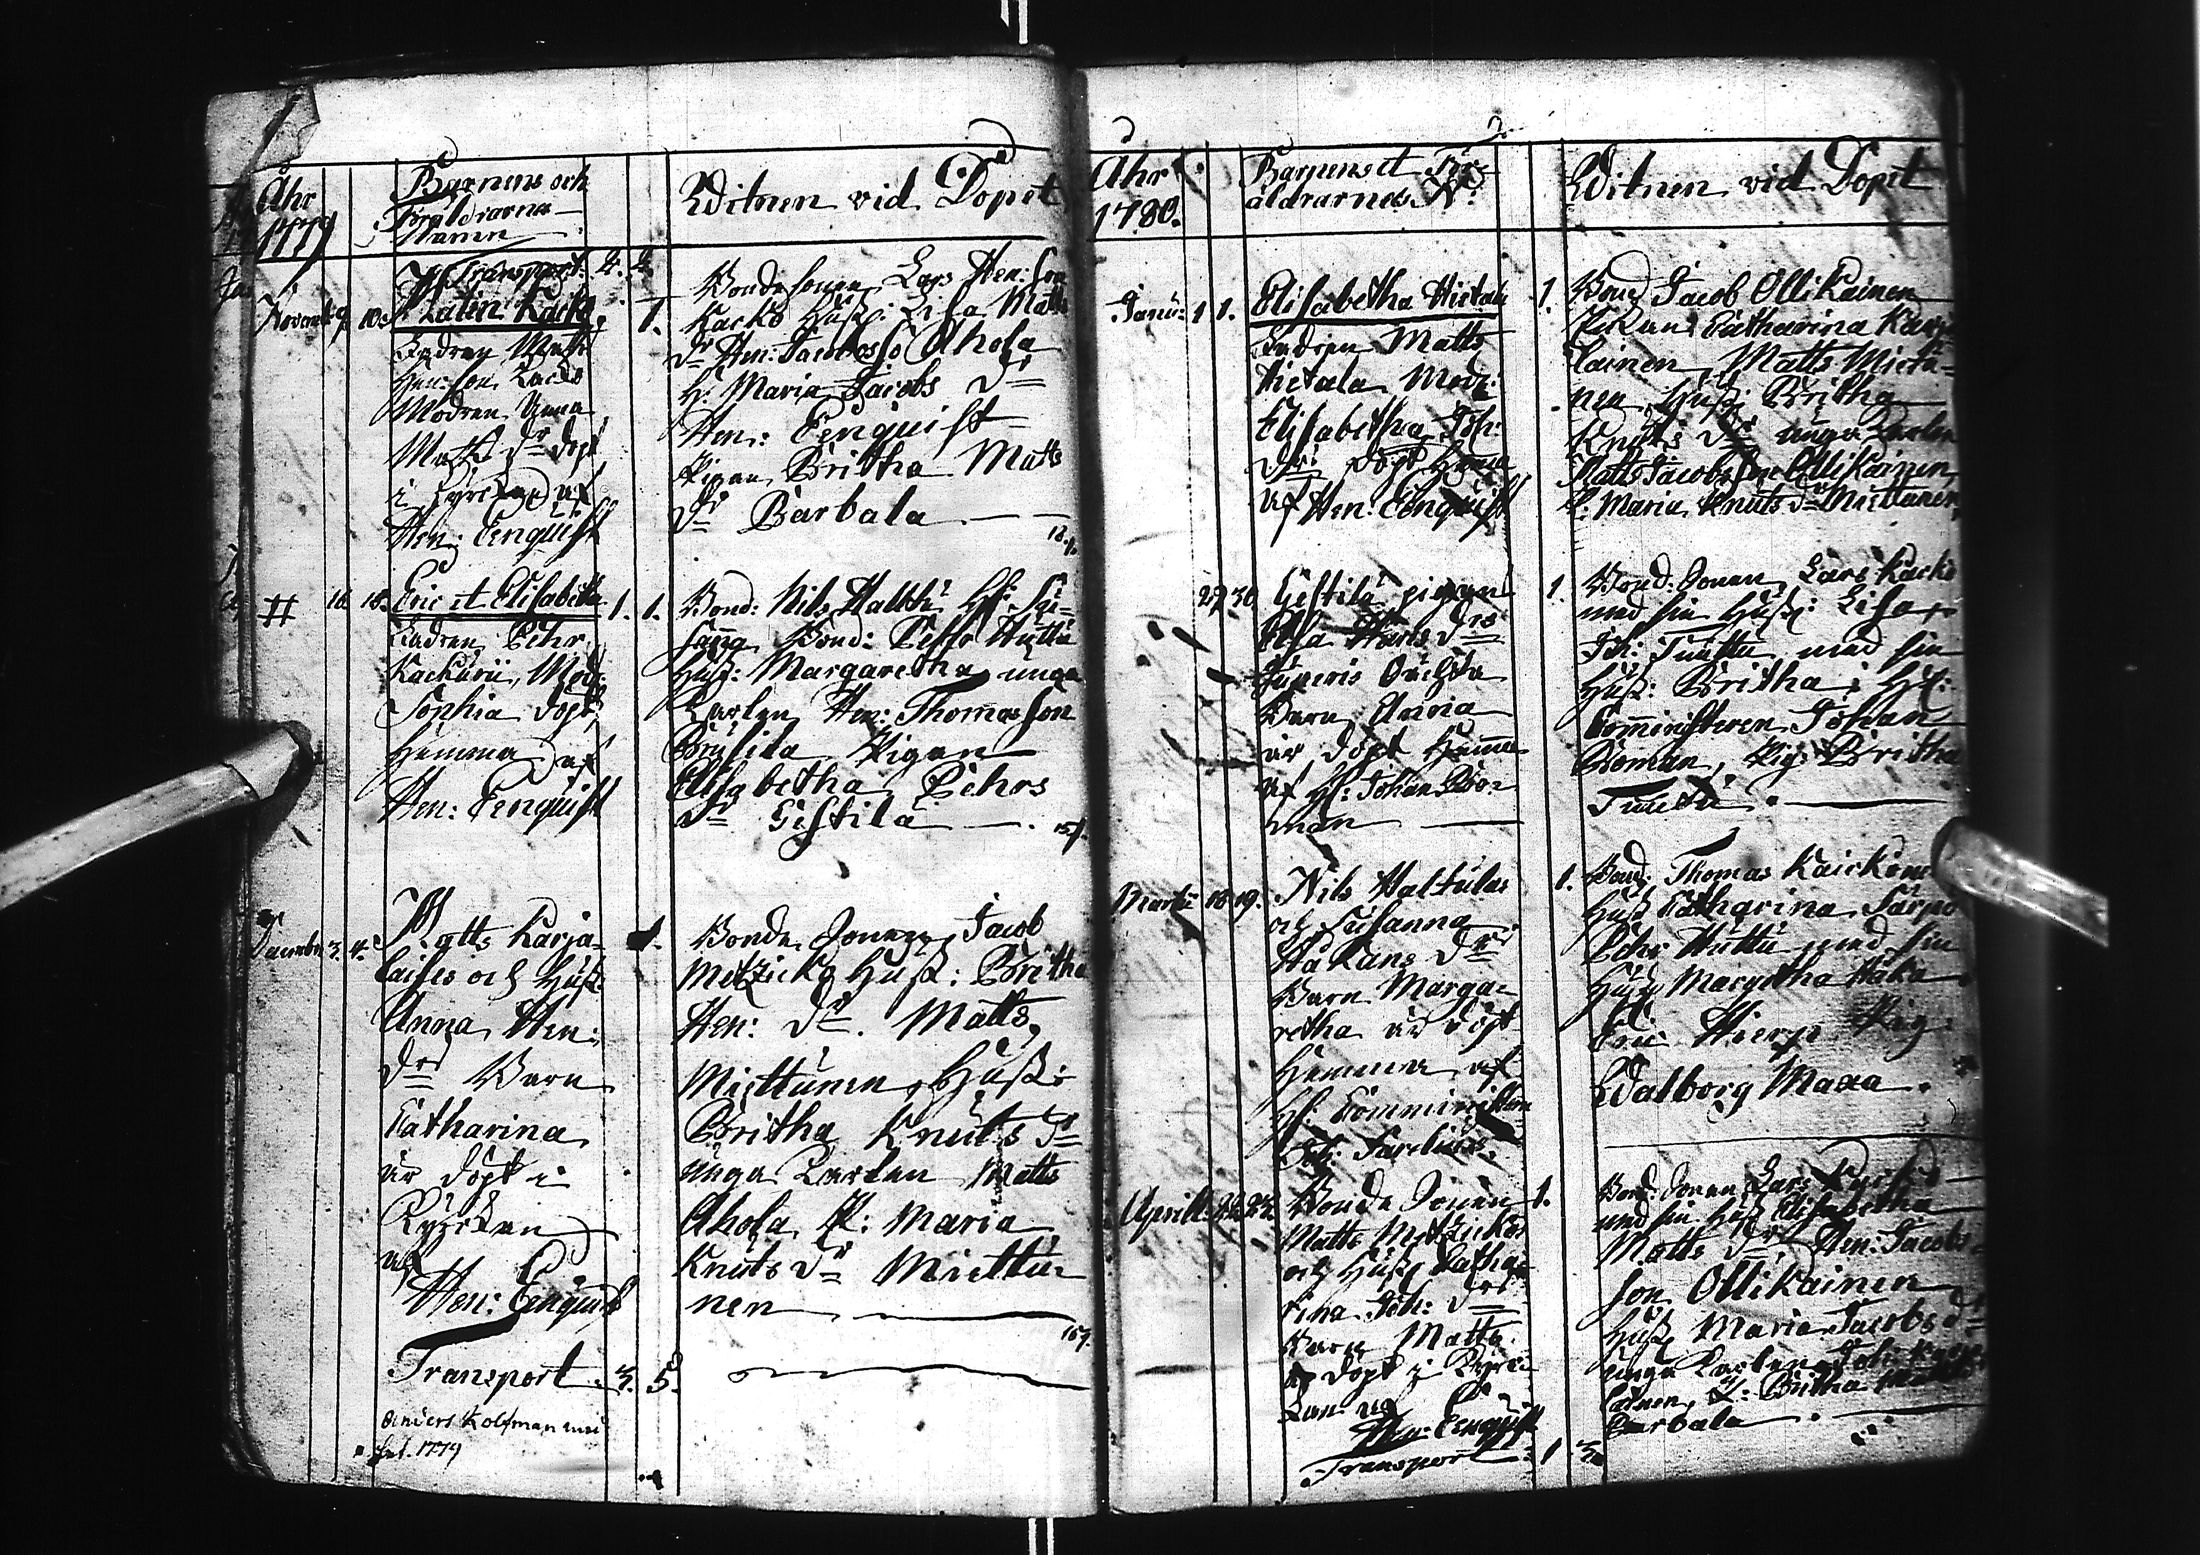 Åhr
1779
Barnens och
Föräldrarnas
Namn
Witnen vid Dopet
Transport: 2. 4.
Novemb: 9. 10. Malin Kacko
1.
Fadren Matts
Hen: Son Kacko
Modren Anna
Matts dr döpt
i Kyrckan af
Hen: Eenquist
Bonde sonen Lars Hen: Son
Kacko Hust: Lisa Matts
dr Hen: Jacobs so Ahola
H: Maria Jacobs dr
Hen: Eenquist
Pigan Britha Matts
dr Barbala
16. 18. Eric et Elisabetha 1. 1.
Fadren Pehr
Kackurii, Mod:
Sophia döpt
Hemma af
Hen: Eenquist
Bond: Nils Halttu
Bond: Pehr Huttu
Hust: Margaretha unga
Karlen Hen: Thomasson
Pigan
Elisabetha Pehrs
dr Gestilä
Decembr 3. 4. Matts Karja-
laises och Hust:
1.
Anna Hen:
drs Barn
Catharina
är döpt i
Kyrckan
af
Hen: Eenquist
Bonde Sonen Jacob
Metzicko Hust: Britha
Hen: dr. Matts
Miettünen, Hust:
Britha Knuts dr
unga Karlen Matts
Ahola P: Maria
Knuts dr Miettu-
nen
167.
Transport 3. 5.
Anders Kolfman
1779
2
Åhr
1780.
Barnens et För-
äldrarnas N:
Witnen vid Dopet
Janu: 1 1. Elisabetha Hietala 1.
Fadren Matts
Hietala Mod:
Elisabetha Joh:
drs döpt Hema
af Hen: Eenquist
Bond Jacob Ollikainen
Pikan Catharina Karja
lainen, Matts Mietü-
nen Hust: Britha
Knuts dr unga Karlen
Matts Jacobs Son Ollikainen
P: Maria Knuts dr Miettünen
29 30 Gestilä pigans 1.
Elsa Hans drs
Barn Anna
är döpt Hemma
af H: Johan Bro-
man
Bond: Sonen Lars Kacko
med sin Hust: Lisa
Joh: Tuuttu med sin
Hust: Britha, H:
Comministeren Johan
Broman, Pig: Britha
Tuuttu
Marti 18 19. Nils Haltulas 1.
och Susanna
Håkans drs
Barn Marga-
retha är döpt
Hemma af
H: Comministern
Bond: Thomas Kaickonen
Hust Catharina
Pehr Huttu med sin
Hust Margetha Håka
Eric Hierp Pig:
Walborg Maxa.
Aprill. Bonde Sonen 1.
Matts Metzickos
och Hust Catha-
rina Joh: drs
Barn Matts
är döpt i Kyrc-
kan af
Hen: Eenquist
Bond: Sonen Lars
med sin Hust Elisabetha
Matts dr Hen: Jacobs
Son Ollikainen
Hust Maria Jacobs dr
unga Karlen Joh:
P: Britha Matts
Barbala
Transport: 1 3.